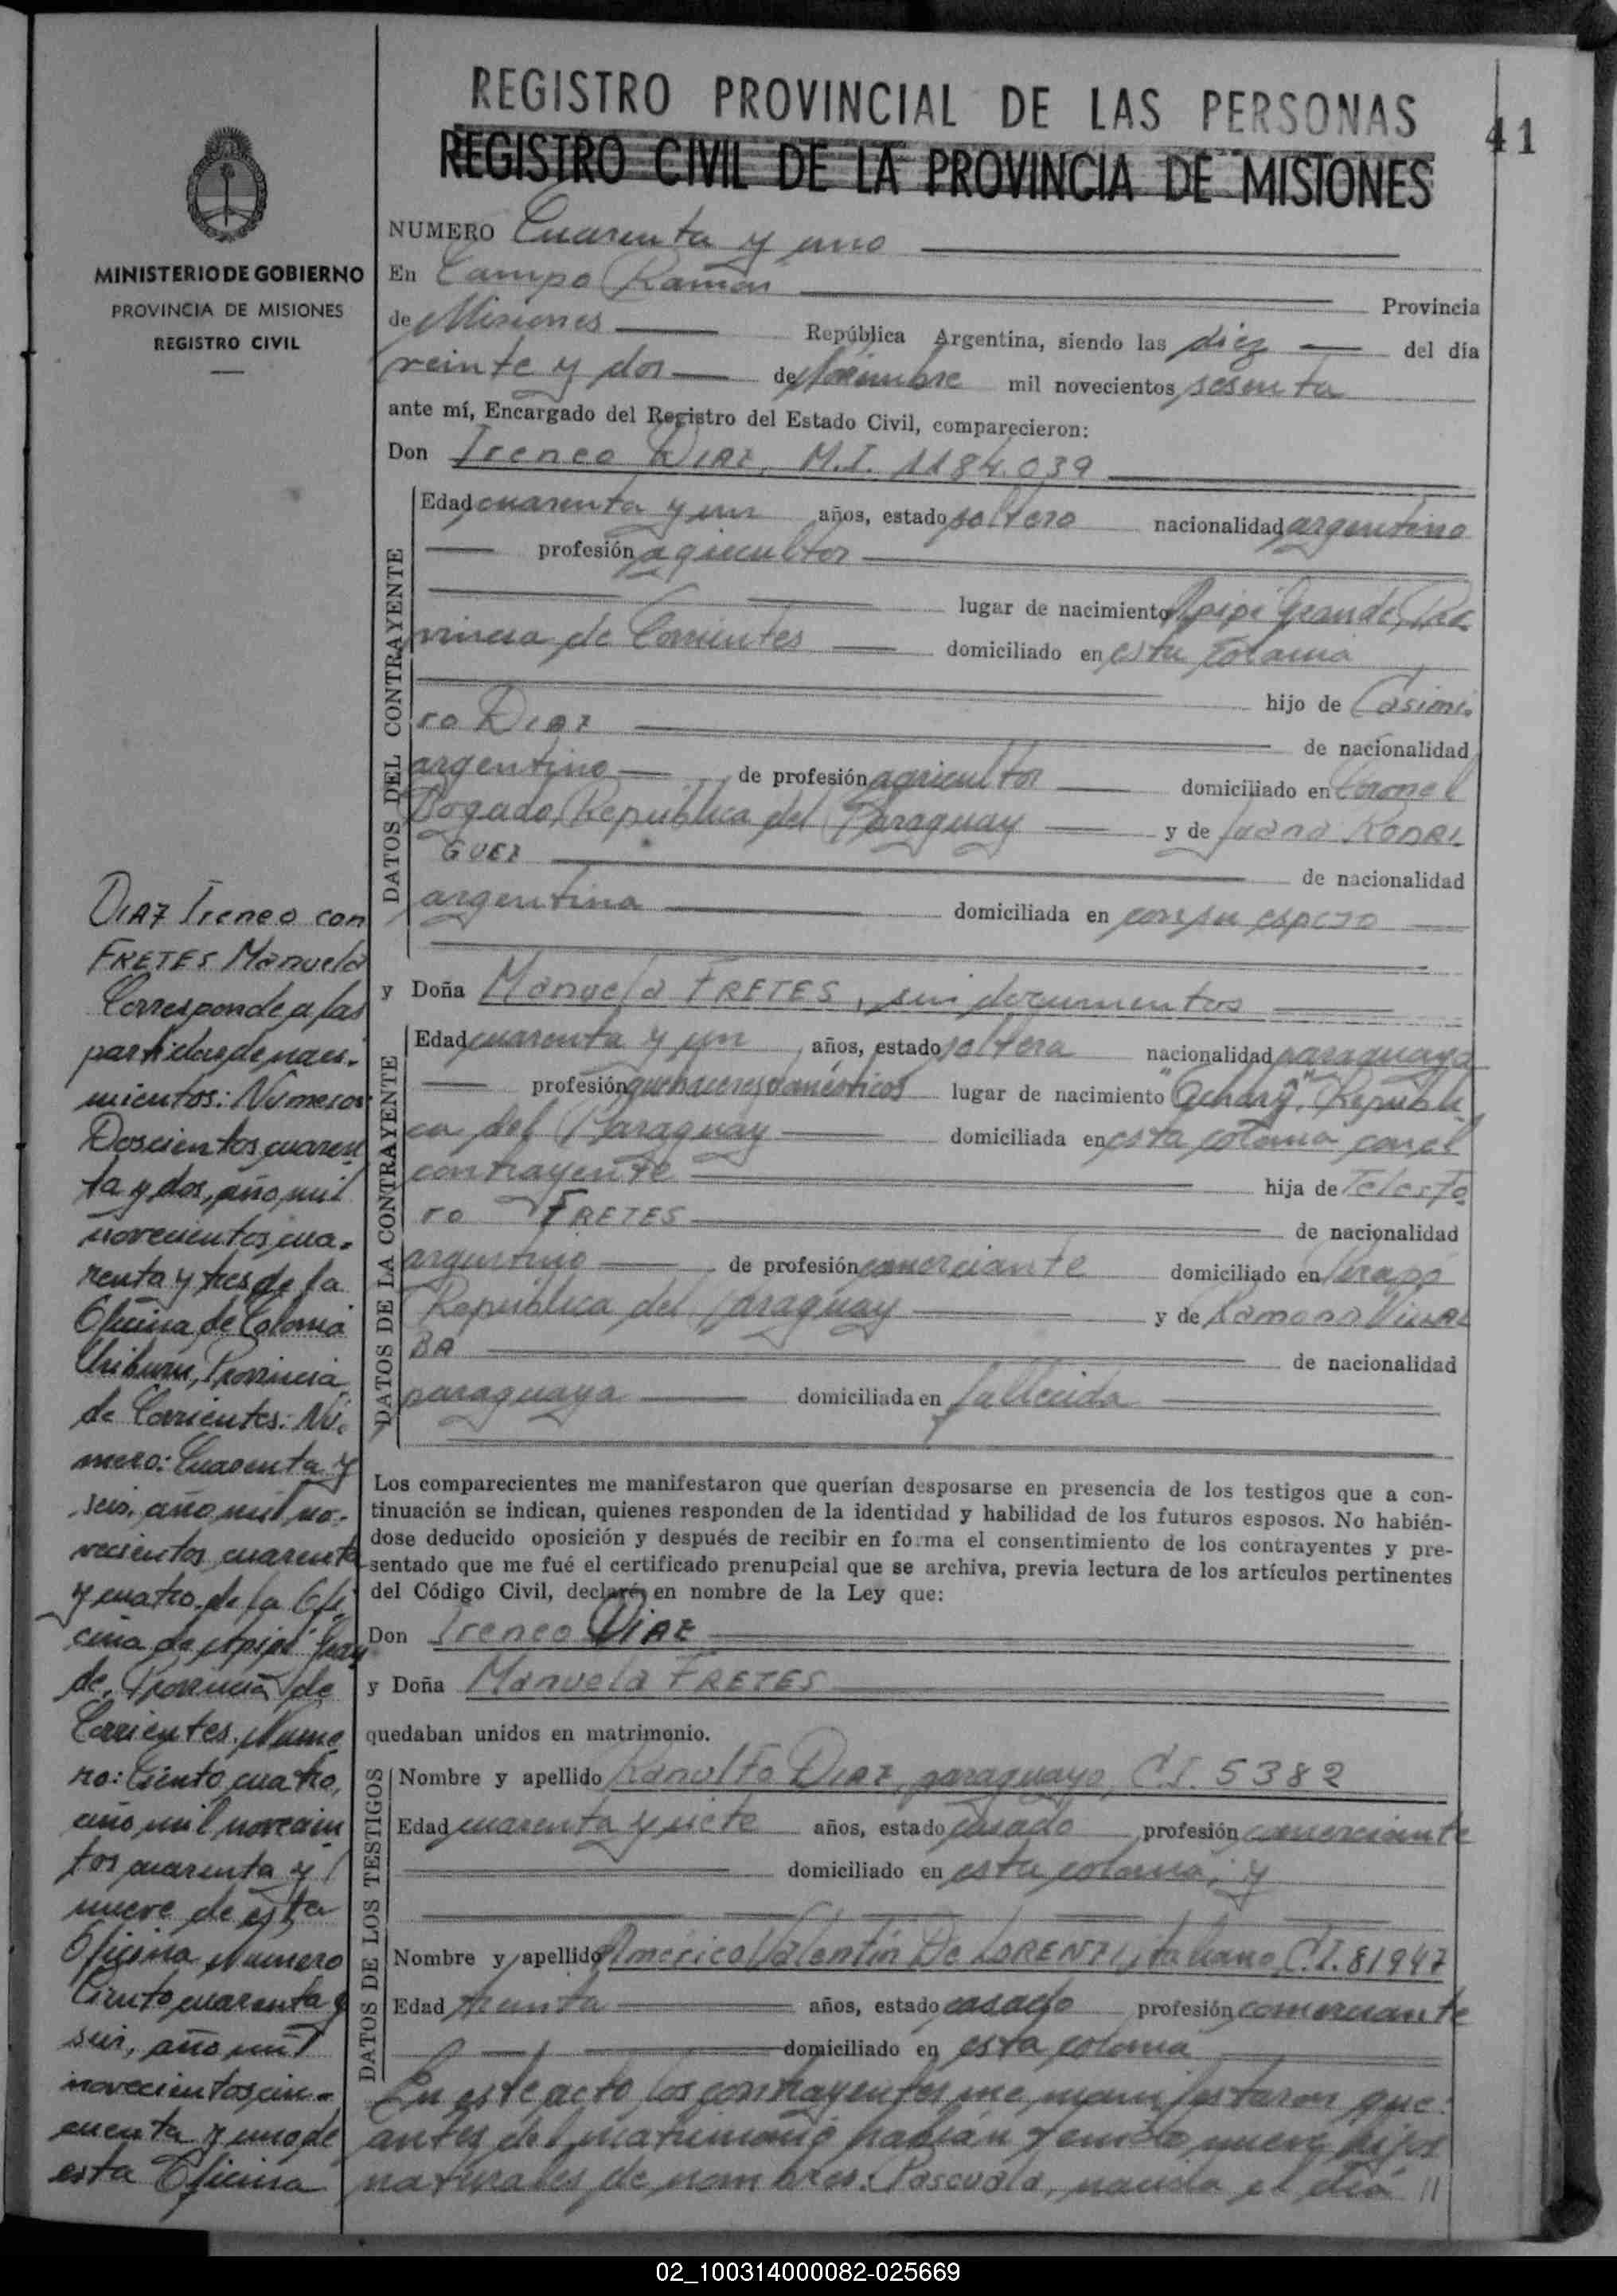 REGISTRO PROVINCIAL DE LAS PERSONAS
REGISTRO CIVIL DE LA PROVINCIA DE MISIONES
41
MINISTERIO DE GOBIERNO
PROVINCIA DE MISIONES
REGISTRO CIVIL
NUMERO Cuarenta y uno
En Campo Ramón Provincia
de Misiones República Argentina, siendo las diez del día
veinte y dos de Noviembre mil novecientos sesenta
ante mí, Encargado del Registro del Estado Civil, comparecieron:
Don Ireneo DIAZ, M.I. 1184.039
DATOS DEL CONTRAYENTE
Edad cuarenta y un años, estado soltero nacionalidad argentino
profesión agricultor
lugar de nacimiento Apipé Grande, Pro
vincia de Corrientes domiciliado en esta colonia
hijo de Casimi-
ro DIAZ
de nacionalidad
argentino de profesión agricultor domiciliado en Coronel
Bogado, República del Paraguay y de Juana RODRI-
GUEZ
de nacionalidad
argentina domiciliada en con su esposo
y Doña Manuela FRETES, sin documentos
DATOS DE LA CONTRAYENTE
Edad cuarenta y un años, estado soltera nacionalidad paraguaya
profesión quehaceres domésticos lugar de nacimiento República
ca del Paraguay domiciliada en esta colonia con el
contrayente hija de Telesfo-
ro FRETES
de nacionalidad
argentino de profesión comerciante domiciliado en
República del Paraguay y de Ramona VILLAL
BA
de nacionalidad
paraguaya domiciliada en fallecida
Los comparecientes me manifestaron que querían desposarse en presencia de los testigos que a con-
tinuación se indican, quienes responden de la identidad y habilidad de los futuros esposos. No habién-
dose deducido oposición y después de recibir en forma el consentimiento de los contrayentes y pre-
sentado que me fué el certificado prenupcial que se archiva, previa lectura de los artículos pertinentes
del Código Civil, declaré en nombre de la Ley que:
Don Ireneo DIAZ
y Doña Manuela FRETES
quedaban unidos en matrimonio.
DATOS DE LOS TESTIGOS
Nombre y apellido Ranulfo DIAZ, paraguayo, C.I. 5382
Edad cuarenta y siete años, estado casado profesión comerciante
domiciliado en esta colonia, y
Nombre y apellido Américo Valentín De LORENZI, italiano, C.I. 81947
Edad treinta años, estado casado profesión comerciante
domiciliado en esta colonia
En este acto los contrayentes me manifestaron que:
antes del matrimonio habían tenido nueve hijos
naturales de nombres: Pascuala, nacida el día //
DIAZ Ireneo con
FRETES Manuela
Corresponde a las
partidas de naci-
mientos: Números
Doscientos cuaren
ta y dos, año mil
novecientos cua-
renta y tres de la
Oficina de Colonia
Uriburu, Provincia
de Corrientes: Nú-
mero: Cuarenta y
seis, año mil no-
vecientos cuarenta
y cuatro de la Ofi-
cina de Apipé Gran
de, Provincia de
Corrientes. Núme
ro: Ciento cuatro,
año mil novecien
tos cuarenta y
nueve de esta
Oficina Número
Ciento cuarenta y
seis, año mil
novecientos cin-
cuenta y uno de
esta Oficina
02_100314000082-025669